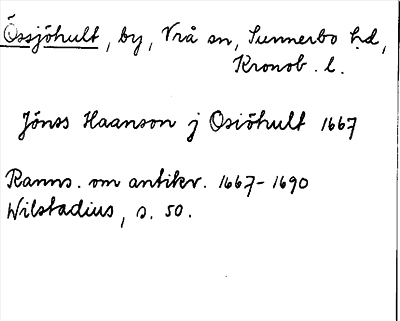 Össjöhult, by, Vrå sn, Sunnerbo hd,
Kronob. l.
Jönss Haanson j Osiöhult 1667
Ranns. om antikv. 1667-1690
Wilstadius, s. 50.